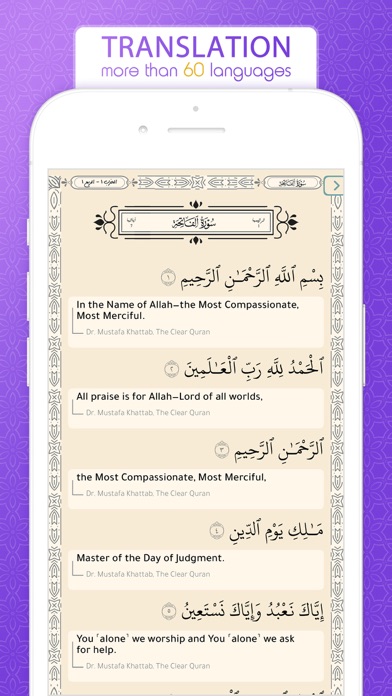 TRANSLATION
more than 60 languages
الجزء ١ - الربع ١
سُورَةُ الفَاتِحَةِ
سُورَةُ الفَاتِحَةِ
بِسْمِ ٱللَّهِ ٱلرَّحْمَـٰنِ ٱلرَّحِيمِ ١
In the Name of Allah—the Most Compassionate,
Most Merciful.
Dr. Mustafa Khattab, The Clear Quran
ٱلْحَمْدُ لِلَّهِ رَبِّ ٱلْعَـٰلَمِينَ ٢
All praise is for Allah—Lord of all worlds,
Dr. Mustafa Khattab, The Clear Quran
ٱلرَّحْمَـٰنِ ٱلرَّحِيمِ ٣
the Most Compassionate, Most Merciful,
Dr. Mustafa Khattab, The Clear Quran
مَـٰلِكِ يَوْمِ ٱلدِّينِ ٤
Master of the Day of Judgment.
Dr. Mustafa Khattab, The Clear Quran
إِيَّاكَ نَعْبُدُ وَإِيَّاكَ نَسْتَعِينُ ٥
You ˹alone˺ we worship and You ˹alone˺ we ask
for help.
Dr. Mustafa Khattab, The Clear Quran